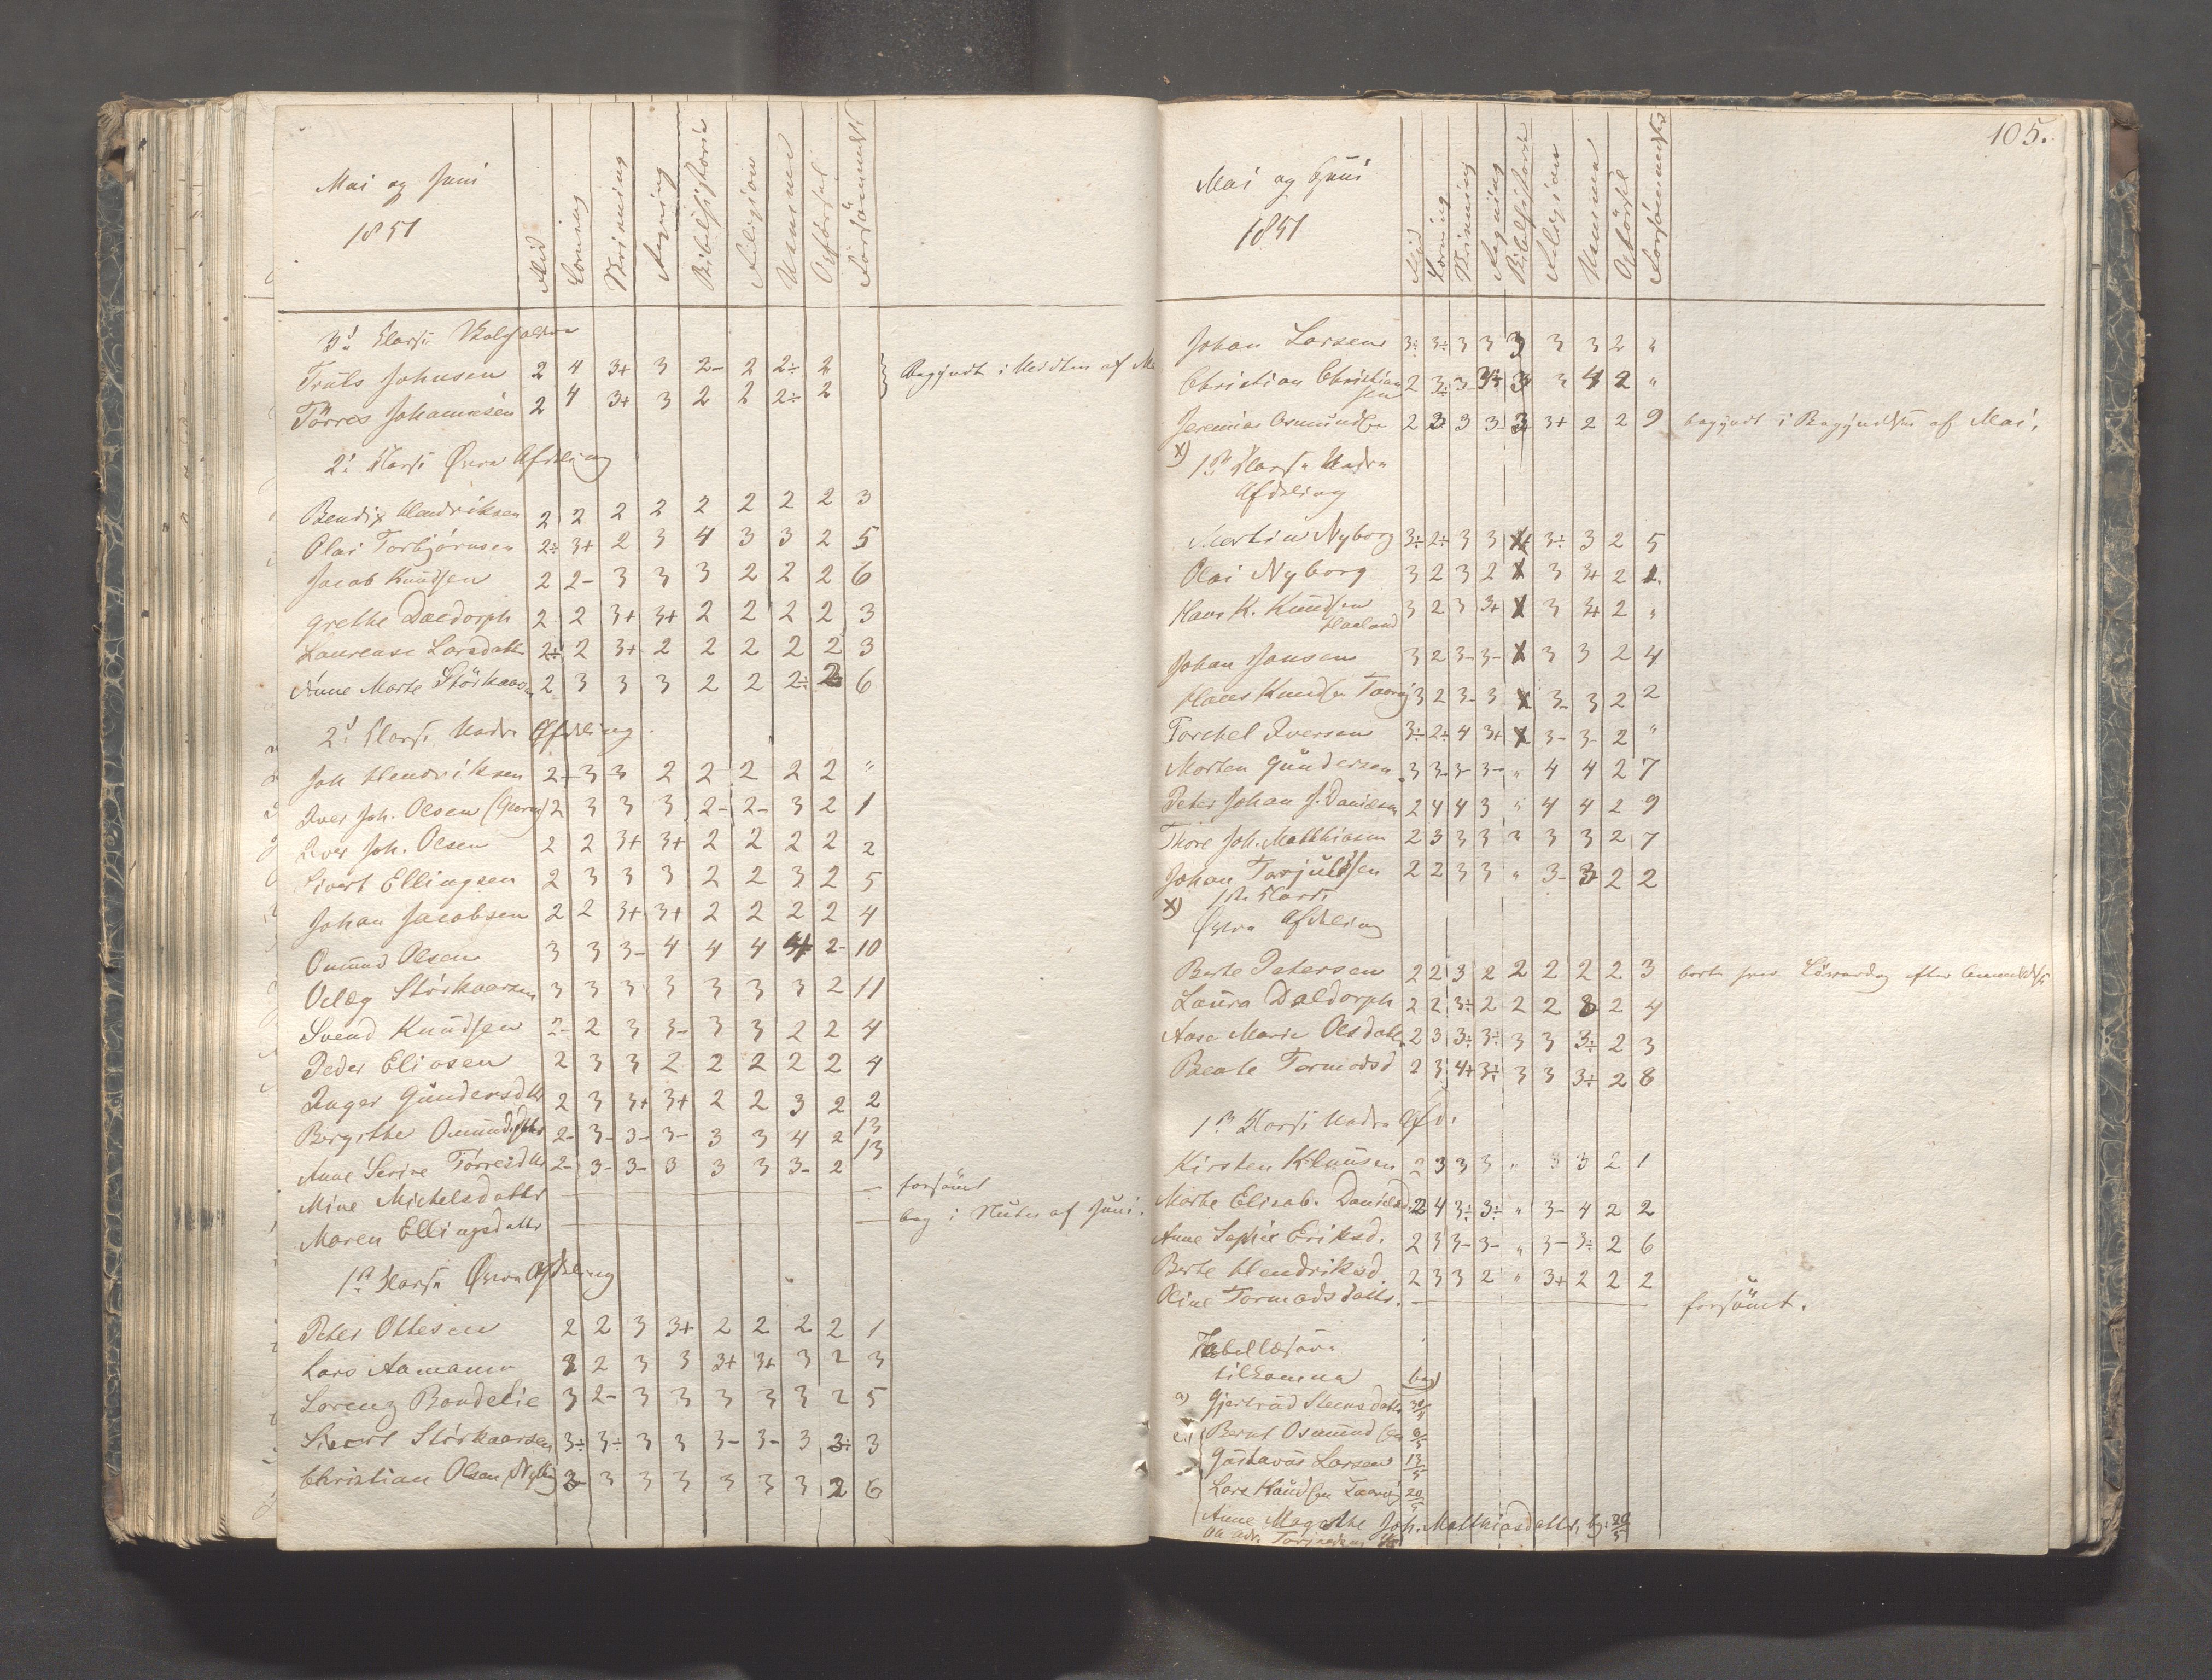 Mai og Juni
1851
Flid
Læsning
Skrivning
Regning
Bibelhistorie
Religion
Udenad
Opførsel
Forsömmelser
3d Klasse
Truls Johnsen 2 4 3+ 3 2- 2 2÷ 2
Törres Johannesen 2 4 3+ 3 2 2 2÷ 2
Begyndt i Midten af
2d Klasse Øvre Afdeling
Bendix Hendriksen 2 2 2 2 2 2 2 2 3
Olai Torbjörnsen 2÷ 3+ 2 3 4 3 3 2 5
Jacob Knudsen 2 2- 3 3 3 2 2 2 6
Grethe Daldorph 2 2 3+ 3+ 2 2 2 2 3
Laurense Larsdatter 2÷ 2 3+ 2 2 2 2 2 3
Anne Marte Störkaars 2 3 3 3 2 2 2÷ 2 6
2d Klasse Nedre Afdeling
Joh Hendriksen 2÷ 3 3 2 2 2 2 2 "
Iver Joh. Olsen 2 3 3 3 2- 2- 3 2 1
Iver Joh. Olsen 2 2 3+ 3+ 2 2 2 2 2
Sivert Ellingsen 2 3 3 3 2 2 3 2 5
Johan Jacobsen 2 2 3+ 3+ 2 2 2 2 4
Omund Olsen 3 3 3- 4 4 4 4 2- 10
Velæg Störkaarsen 3 3 3 3 3 3 3 2 11
Svend Knudsen 2- 2 3 3- 3 3 2 2 4
Peder Eliasen 2 3 3 2 2 2 2 2 4
Inger Gundersdtr 2 3 3+ 3+ 2 2 3 2 2
Bergithe Omundsdtr 2- 3- 3- 3- 3 3 4 2 13
Anne Serine Törresdtr 2- 3- 3- 3 3 3 3- 2 13
Mine Michelsdattr — forsömt
Maren Ellingsdattr — beg i Slutn af Juni.
1ste Klasse Øvre Afdeling
Peter Ottesen 2 2 3 3+ 2 2 2 2 1
Lars Aamann 3 2 3 3 3+ 3+ 3 2 3
Lorenz Bondelie 3 2- 3 3 3 3 3 2 5
Sivert Störkaarsen 3÷ 3÷ 3 3 3- 3- 3 3÷ 3
Christian Olsen 3- 3 3 3 3 3 3 2 6
105.
Mai og Juni
1851
Flid
Læsning
Skrivning
Regning
Bibelhistorie
Religion
Udenad
Opförsel
Forsömmelser
Johan Larsen 3÷ 3÷ 3 3 3 3 3 2 "
Christian Christiansen 2 3÷ 3- 3÷ 3 3 4 2 "
Jeremias Osmundsen 2 3 3 3 3 3+ 2 2 9 begyndt i Begyndelsen af Mai.
x) 1ste Klasse Nedre
Afdeling
Martin Nyborg 3÷ 2÷ 3 3 x 3÷ 3 2 5
Olai Nyborg 3 2 3 2 x 3 3+ 2 1.
Hans K. Knudsen Haaland 3 2 3 3+ x 3 3+ 2 "
Johan Jansen 3 2 3- 3- x 3 3 2 4
Hans Knudsen 3 2 3- 3 x 3- 3 2 2
Torchel Iversen 3÷ 2÷ 4 3+ x 3- 3- 2 "
Morten Gundersen 3 3- 3- 3- " 4 4 2 7
Peter Johan J. Danielsen 2 4 4 3 " 4 4 2 9
Thore Joh. Matthiasen 2 3 3 3 " 3 3 2 7
Johan Tarjuldsen 2 2 3 3 " 3- 3 2 2
x) 1ste Klasse
Øvre Afdeling
Berte Petersen 2 2 3 2 2 2 2 2 3
Laura Daldorph 2 2 3÷ 2 2 2 3 2 4
Aase Marie Olsdatt 2 3 3÷ 3÷ 3 3 3÷ 2 3
Beate Tormodsd 2 3 4+ 3÷ 3 3 3+ 2 8
1ste Klasse Nedre Afd.
Kirsten Klausen 2 3 3 3 " 3 3 2 1
Marthe Elisab. Danielsd. 2 4 3÷ 3÷ " 3- 4 2 2
Anne Sophie Eriksd. 2 3 3- 3- " 3- 3÷ 2 6
Berte Hendriksd. 2 3 3 2 " 3+ 2 2 2
Oline Tormodsdattr. — forsömt.
Tabellæsere
tilkomne beg
a) Gjertrud Steensdattr 30/4
Bernt Osmundsen 6/5
Gustavus Larsen 13/5
Lars Knudsen 20/5
Anne Magrethe Joh. Matthiasdattr. bg: 20/5